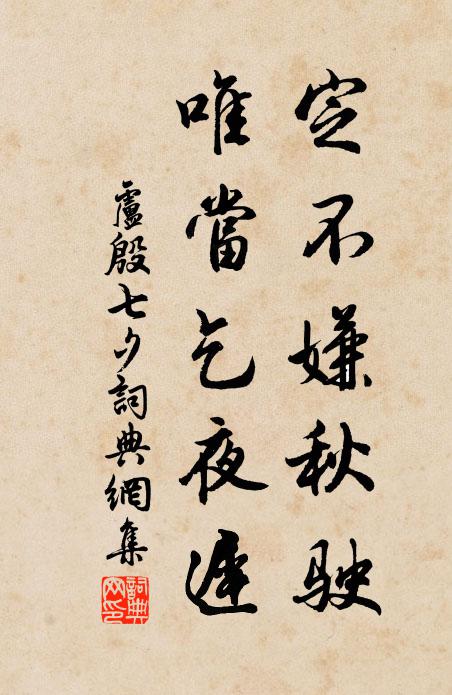 定不嫌秋駛
唯當乞夜遲
盧殷七夕詞典網集
詞典網印